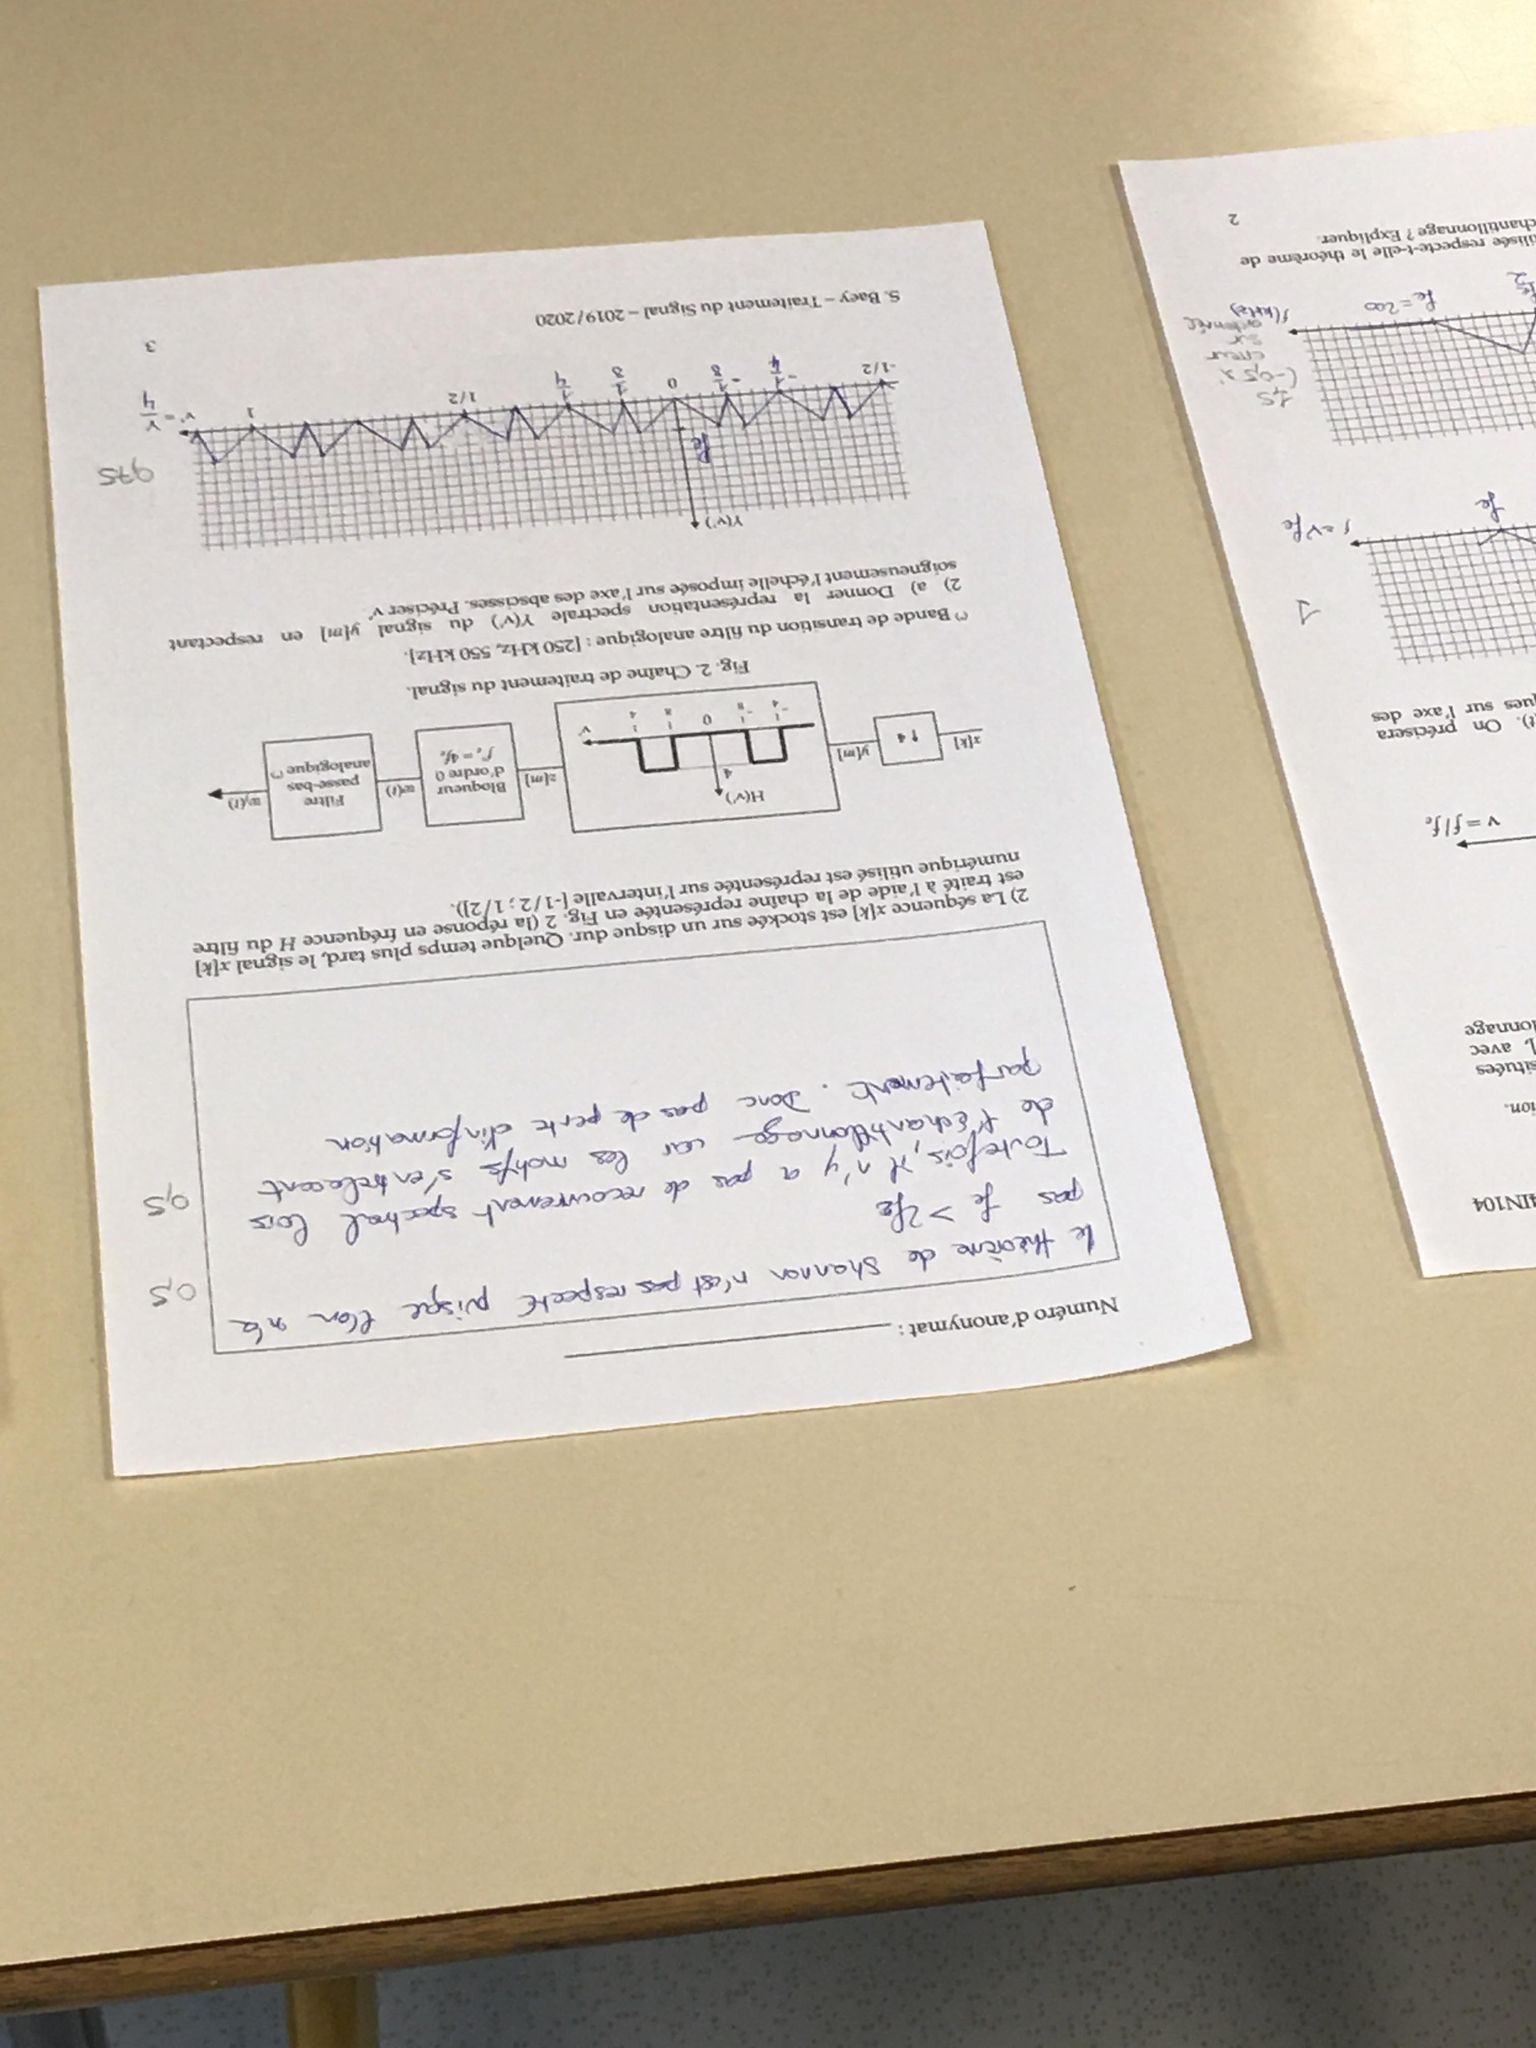 4IN104
ion.
situées
], avec
lonnage
ν = f/fe
t). On précisera
ques sur l'axe des
1
fe
f = ν fe
1,5
(-0,5 x
erreur
sur
ordonnée
fe/2
fe = 200
f(kHz)
ilisée respecte-t-elle le théorème de
chantillonnage ? Expliquer.
2
Numéro d'anonymat :
le théorème de Shannon n'est pas respecté puisque l'on n'a
pas fe > 2f2
Toutefois, il n'y a pas de recouvrement spectral lors
de l'échantillonnage car les motifs s'entrelacent
parfaitement. Donc pas de perte d'information
0,5
0,5
2) La séquence x[k] est stockée sur un disque dur. Quelque temps plus tard, le signal x[k]
est traité à l'aide de la chaîne représentée en Fig. 2 (la réponse en fréquence H du filtre
numérique utilisé est représentée sur l'intervalle [-1/2 ; 1/2]).
x[k]
↑ 4
y[m]
H(ν')
4
-1/4 -1/8 0 1/8 1/4 ν'
z[m]
Bloqueur
d'ordre 0
f'e = 4fe
w(t)
Filtre
passe-bas
analogique (*)
w1(t)
Fig. 2. Chaîne de traitement du signal.
(*) Bande de transition du filtre analogique : [250 kHz, 550 kHz].
2) a) Donner la représentation spectrale Y(ν') du signal y[m] en respectant
soigneusement l'échelle imposée sur l'axe des abscisses. Préciser ν'
Y(ν')
fe
0,75
-1/2 -1/4 -1/8 0 1/8 1/4 1/2 1 ν' = ν/4
3
S. Baey – Traitement du Signal – 2019/2020